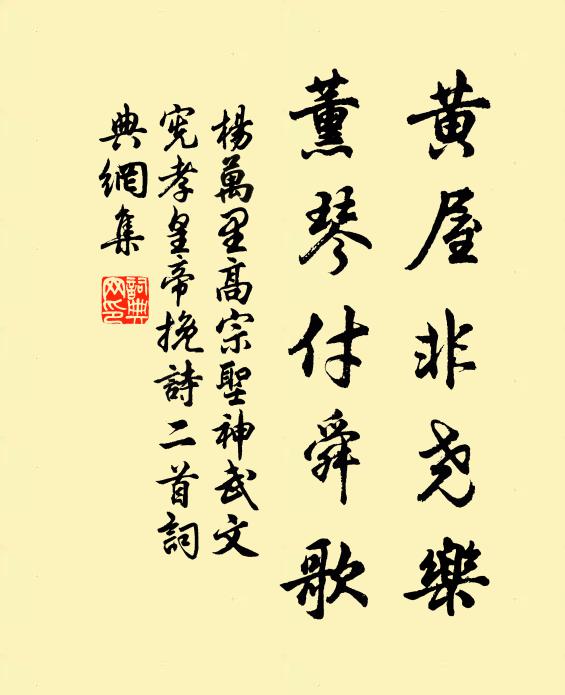 黄屋非尧樂
薰琴付舜歌
楊萬里高宗聖神武文
宪孝皇帝挽詩二首詞
典網集
詞典網印